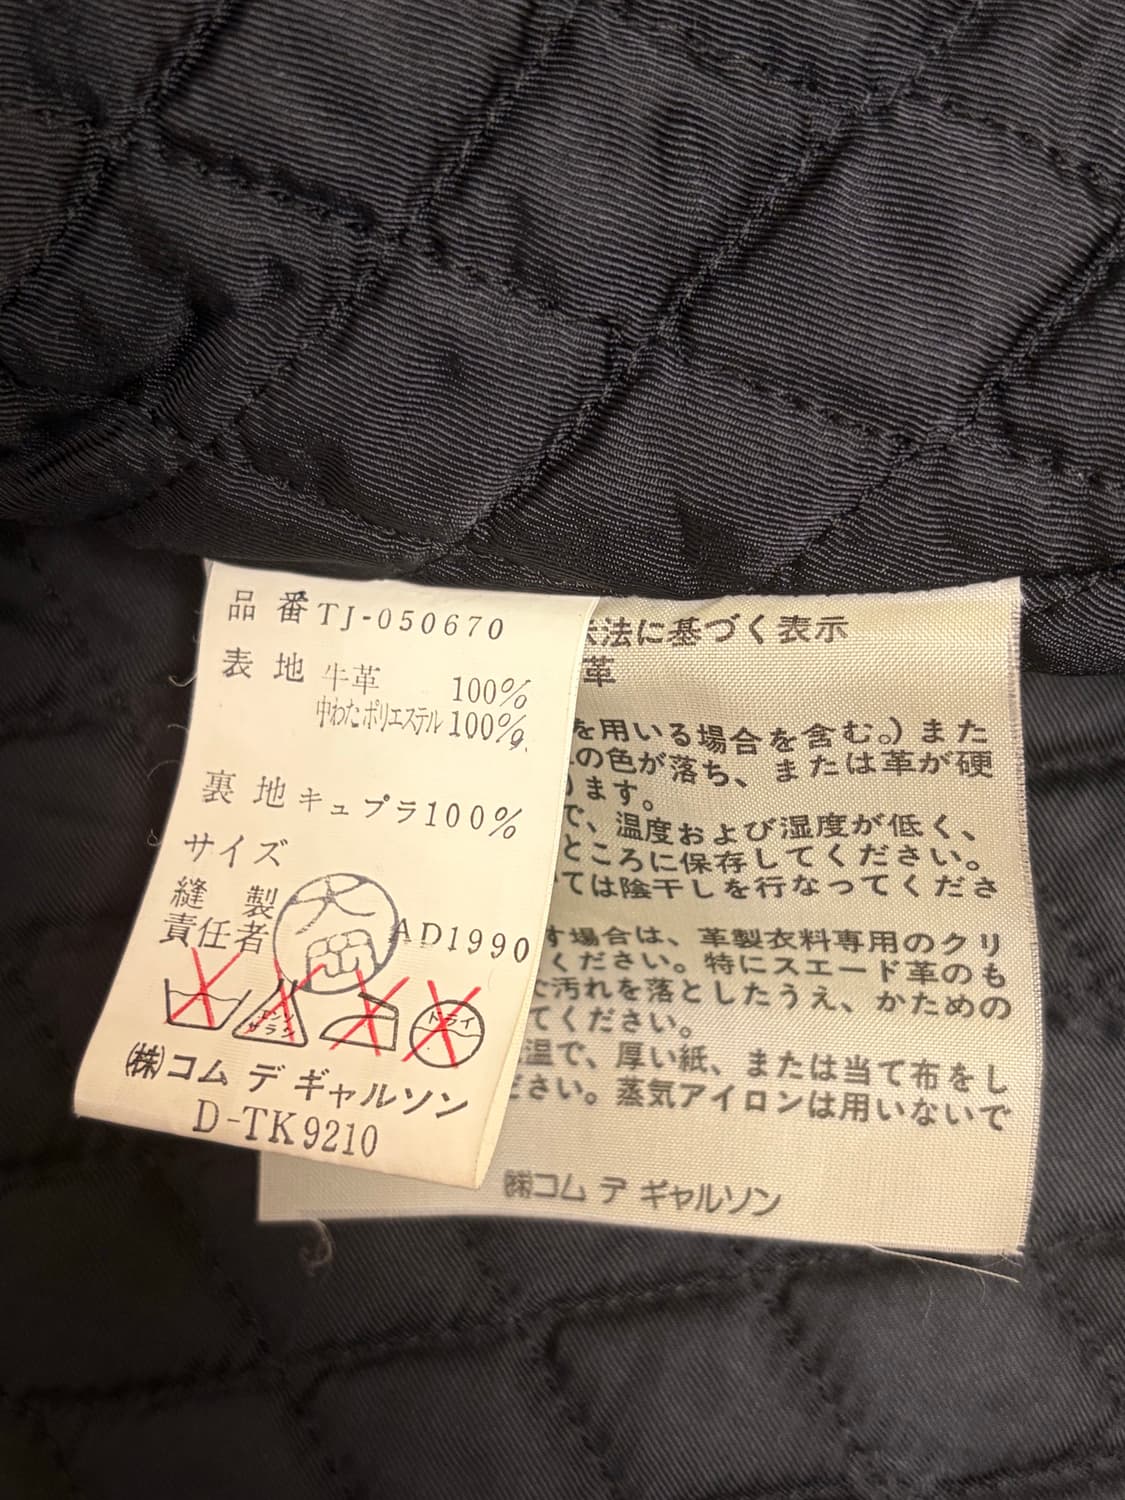 品番TJ-050670
表地 牛革 100%
中わたポリエステル100%
裏地キュプラ100%
サイズ
縫製
責任者
AD1990
エンソ
サラシ
ドライ
(株)コム デ ギャルソン
D-TK9210
法に基づく表示
革
を用いる場合を含む。)また
の色が落ち、または革が硬
ります。
で、温度および湿度が低く、
ところに保存してください。
ては陰干しを行なってくださ
す場合は、革製衣料専用のクリ
ください。特にスエード革のも
で汚れを落としたうえ、かための
てください。
温で、厚い紙、または当て布をし
ださい。蒸気アイロンは用いないで
㈱コム デ ギャルソン